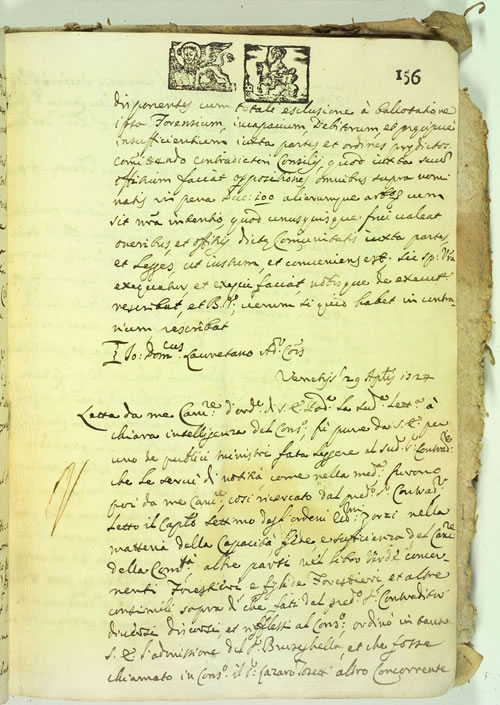 156
disponentes cum totale esclusione à balotatione
ipsa Forensium, incapacium, Debitorum et
insufficientium iuxta partes et ordines predictos
comittendo contradictori Consilij, quod iuxta suum
offitium faciat oppositiones omnibus supra nomi
natis in pena Duc: 100 aliarumque cum
sit nr̃a intentio quod unusquisque frui valeat
oneribus, et offitijs dictæ Comunitatis iuxta partes
et Legges, ut iustum, et conveniens est. Sic Sp: Vr̃a
exequatur et exequi faciat nobisque de execut.ᵉ
rescribat, et B. V.; verum si quid habet in contra
rium rescribat
Io: Dom.cus Lauretano
Venetijs 29 1724
Letta da me Canc.re d'ord.e di S. E. Pod.à la sud.a Lett.a à
chiara intelligenza del Cons.o, fù pure da S. E. per
uno de publici ministri fata leggere al sud.o S.r Contrad.r
che le servi di notitia come nella med.a furono
poi da me Canc.re, così ricercato dal pred.o S.r Contrad.r
Letto il Capito settimo degl'ordeni Zorzi nella
matteria della Capacità fede e sufficienza del Canc.re
della Com.tà, altre parti nel libro Verde concer
nenti Forestieri e figli de Forestieri et altre
consimili sopra di che fati dal pred.o S.r Contraditor
diversi discorsi et al Cons.o; ordinò in tanto
S. E. l'admissione del S.r Brusghella, et che fosse
chiamato in Cons.o il S.r Cazaro Tosetti altro Concorrente